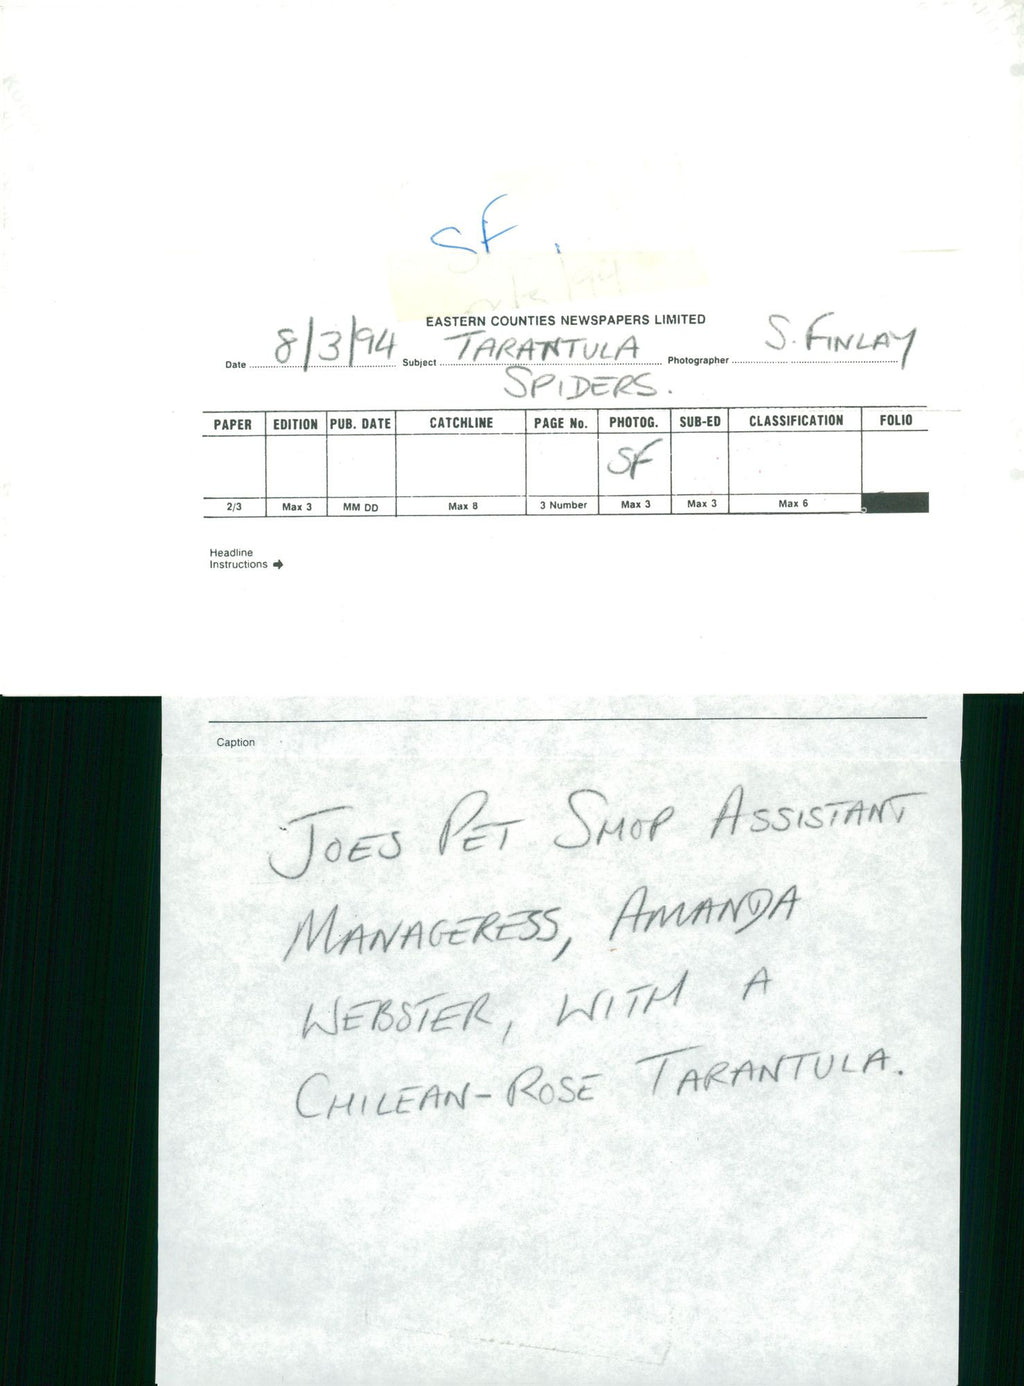 SF
EASTERN COUNTIES NEWSPAPERS LIMITED
Date 8/3/94 Subject TARANTULA Photographer S. FINLAY
SPIDERS.
PAPER EDITION PUB. DATE CATCHLINE PAGE No. PHOTOG. SUB-ED CLASSIFICATION FOLIO
SF
2/3 Max 3 MM DD Max 8 3 Number Max 3 Max 3 Max 6
Headline
Instructions →
Caption
JOES PET SHOP ASSISTANT
MANAGERESS, AMANDA
WEBSTER, WITH A
CHILEAN-ROSE TARANTULA.